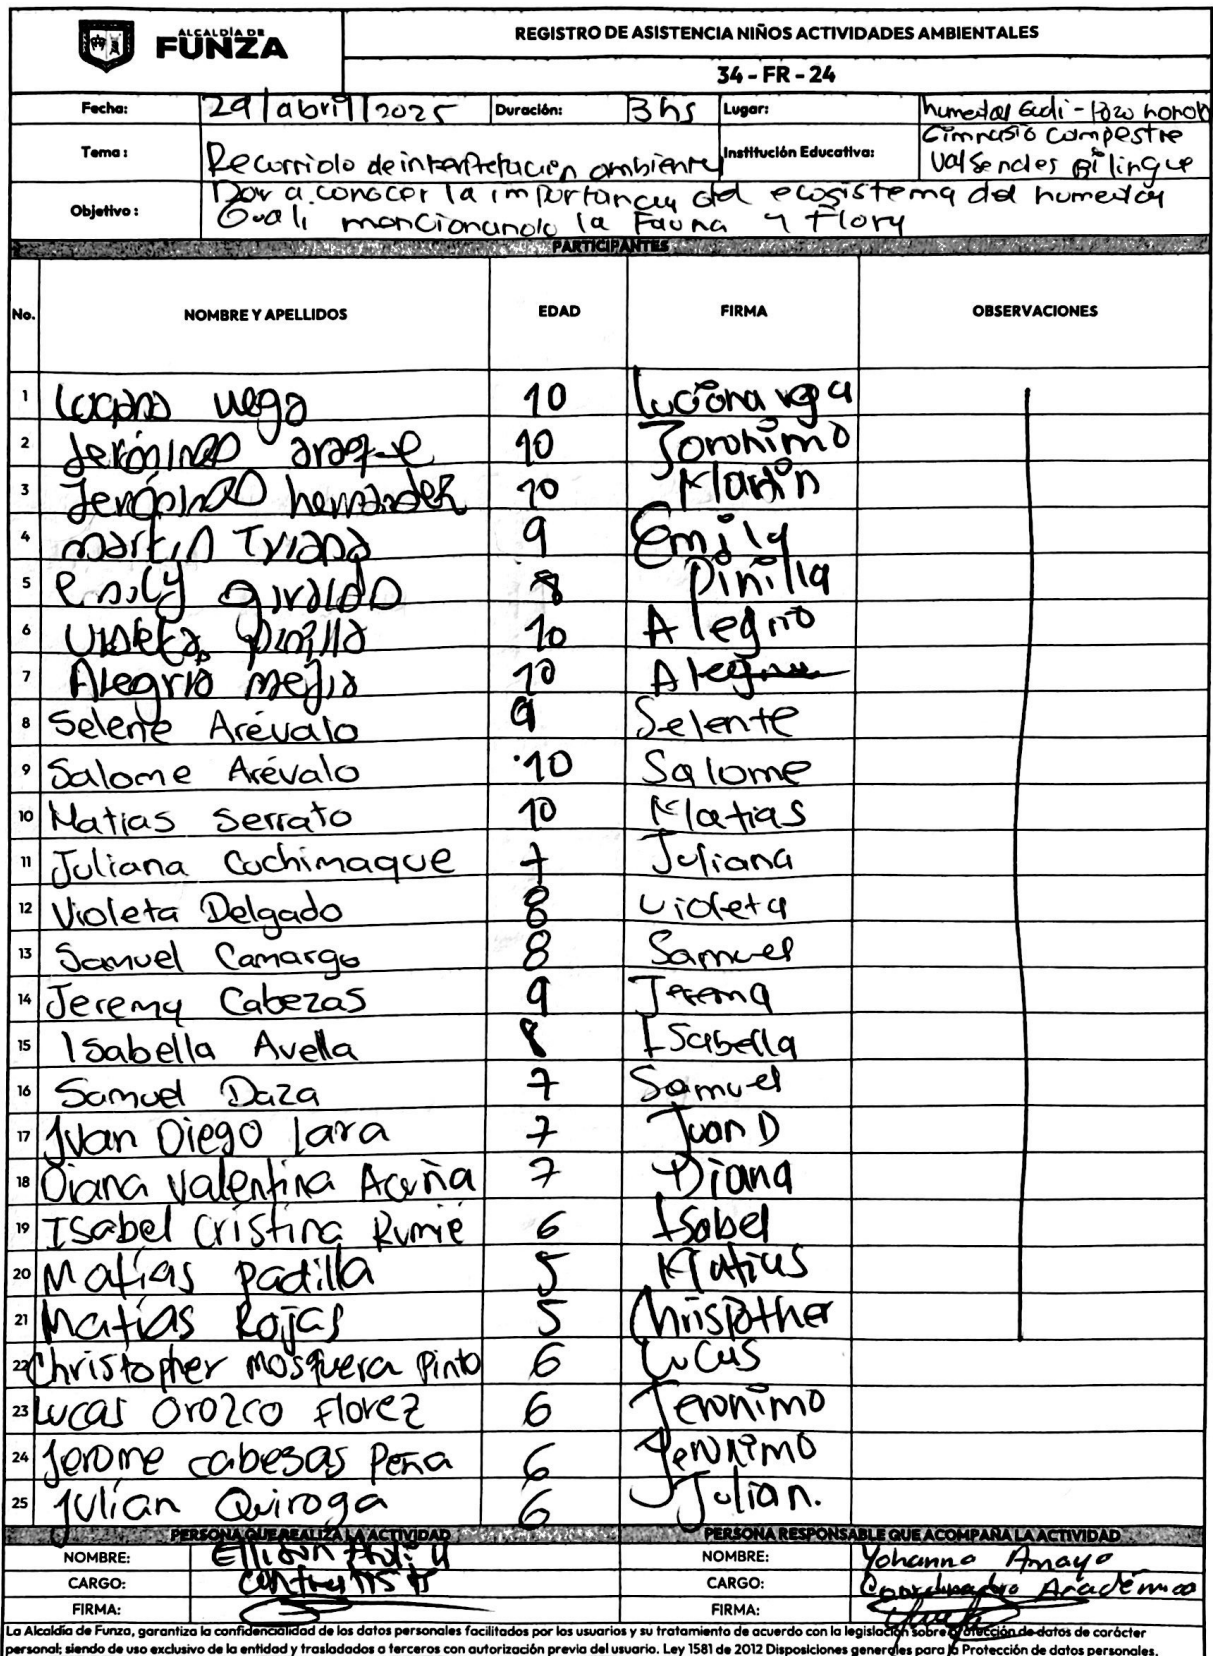 ALCALDÍA DE
FUNZA
REGISTRO DE ASISTENCIA NIÑOS ACTIVIDADES AMBIENTALES
34 - FR - 24
Fecha: 29/abril/2025 Duración: 3hs Lugar: humedal Guali - Pozo hondo
Tema: Recorrido de interpretación ambiental Institución Educativa: Gimnasio campestre Valsendes Bilingue
Objetivo: Dar a conocer la importancia del ecosistema del humedal
Guali mencionando la Fauna y Flora
PARTICIPANTES
No. NOMBRE Y APELLIDOS EDAD FIRMA OBSERVACIONES
1 Luciana vega 10 Luciana vega
2 Jerónimo araque 10 Joronimo
3 Jerónimo hernandez 10 Martin
4 martin Triana 9 Emily
5 emily giraldo 8 Pinilla
6 Violeta pinilla 10 Alegria
7 Alegria mejia 10
8 Selene Arévalo 9 Selente
9 Salome Arévalo 10 Salome
10 Matias Serrato 10 Matias
11 Juliana Cuchimaque 7 Juliana
12 Violeta Delgado 8 violeta
13 Samuel Camargo 8 Samuel
14 Jeremy Cabezas 9 Jeremy
15 Isabella Avella 8 Isabella
16 Samuel Daza 7 Samuel
17 Juan Diego Lara 7 Juan D
18 Diana Valentina Acuña 7 Diana
19 Isabel Cristina Rumie 6 Isabel
20 Matías padilla 5 Matias
21 Matías Rojas 5 Chrispther
22 Christopher mosquera Pinto 6 Lucas
23 Lucas Orozco florez 6 Jeronimo
24 Jerome cabesas Peña 6 Jeronimo
25 Julián Quiroga 6 Julian.
PERSONA QUE REALIZA LA ACTIVIDAD PERSONA RESPONSABLE QUE ACOMPAÑA LA ACTIVIDAD
NOMBRE: NOMBRE: Yohanna Amaya
CARGO: Contratista CARGO: Coordinadora Académica
FIRMA: FIRMA:
La Alcaldía de Funza, garantiza la confidencialidad de los datos personales facilitados por los usuarios y su tratamiento de acuerdo con la legislación sobre protección de datos de carácter
personal; siendo de uso exclusivo de la entidad y trasladados a terceros con autorización previa del usuario. Ley 1581 de 2012 Disposiciones generales para la Protección de datos personales.